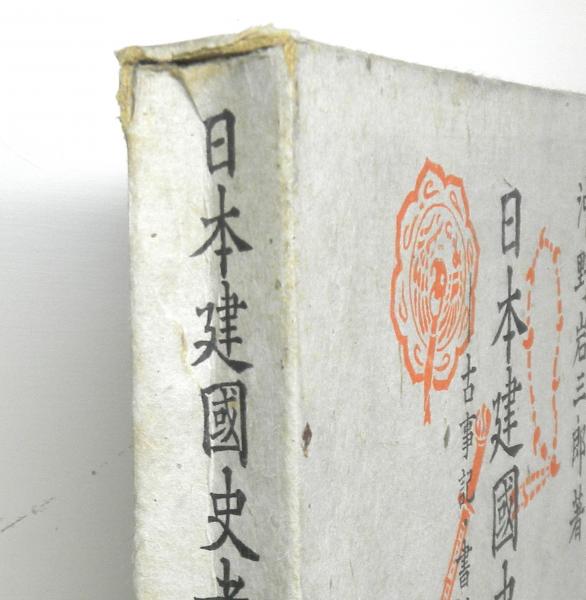 日本建國史考
河野省三郎著
日本建國史
古事記・書